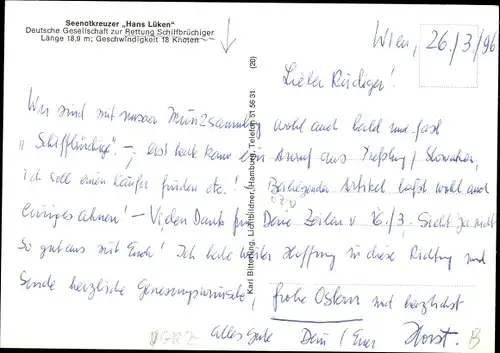 Seenotkreuzer „Hans Lüken"
Deutsche Gesellschaft zur Rettung Schiffbrüchiger
Länge 18,9 m; Geschwindigkeit 18 Knoten
(20)
Karl Bitterling, Lichtbildner, Hamburg, Telefon 51 56 31
Wien, 26./3./96
Lieber Rüdiger!
Wir sind mit unserer Münzsammlung wohl auch bald und fast
"Schiffbrüchige". – erst heute kam ein Anruf aus
ich soll einen Käufer finden etc.! Artikel läßt wohl auch
einiges ahnen! – Vielen Dank für Deine Zeilen v. 16./3. Sieht ja nicht
so gut aus mit Euch! Ich habe weiter Hoffnung in diese Richtung und
sende herzliche Genesungswünsche, frohe Ostern und herzlichst
alles Gute Dein / Euer Horst.